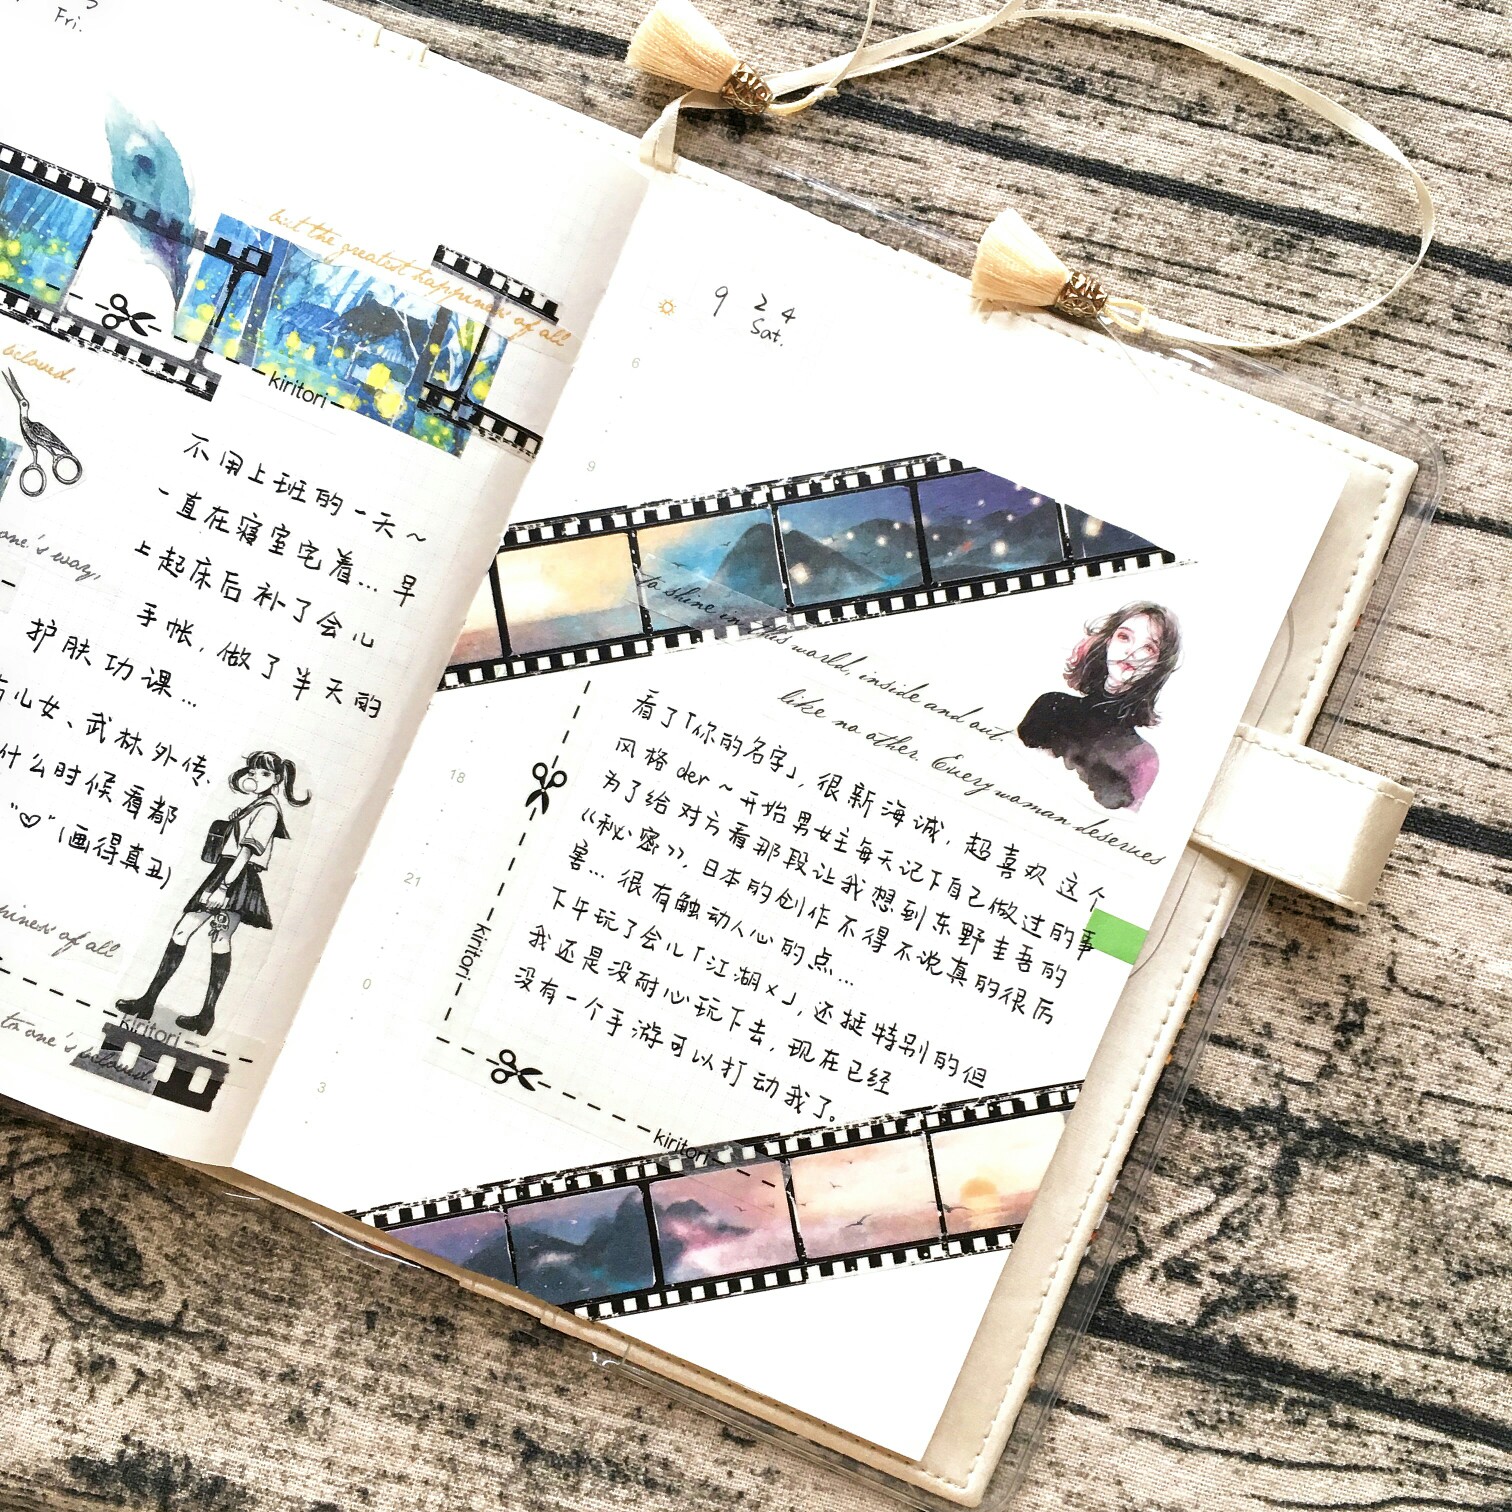 Fri.
but the greatest happiness of all
beloved.
kiritori
不用上班的一天～
一直在寝室宅着...早
上起床后补了会儿
手帐，做了半天的
护肤功课...
儿女、武林外传、
什么时候看都
"♡"（画得真丑）
one's way,
piness of all
kiritori
to one's beloved.
9 24
Sat.
6
9
18
21
0
3
to shine in this world, inside and out
like no other. Every woman deserves
看了「你的名字」，很新海诚，超喜欢这个
风格der～开始男女主每天记下自己做过的事
为了给对方看那段让我想到东野圭吾的
《秘密》，日本的创作不得不说真的很厉
害...很有触动人心的点...
下午玩了会儿「江湖x」，还挺特别的但
我还是没耐心玩下去，现在已经
没有一个手游可以打动我了。
kiritori
kiritori